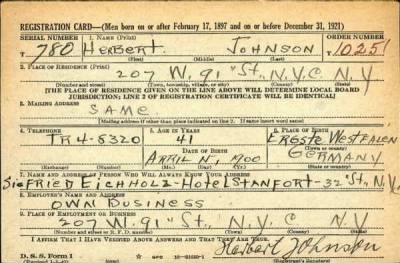 REGISTRATION CARD—(Men born on or after February 17, 1897 and on or before December 31, 1921)
SERIAL NUMBER 1. NAME (Print) ORDER NUMBER
T 780 HERBERT JOHNSON 10251
(First) (Middle) (Last)
2. PLACE OF RESIDENCE (Print)
207 W. 91 St., N.Y.C N.Y
(Number and street) (Town, township, village, or city) (County) (State)
[THE PLACE OF RESIDENCE GIVEN ON THE LINE ABOVE WILL DETERMINE LOCAL BOARD
JURISDICTION; LINE 2 OF REGISTRATION CERTIFICATE WILL BE IDENTICAL]
3. MAILING ADDRESS
SAME
[Mailing address if other than place indicated on line 2. If same insert word same]
4. TELEPHONE 5. AGE IN YEARS 6. PLACE OF BIRTH
TR 4-8320 41 WESTFALEN
DATE OF BIRTH (Town or county)
APRIL 1900 GERMANY
(Exchange) (Number) (Mo.) (Day) (Yr.) (State or country)
7. NAME AND ADDRESS OF PERSON WHO WILL ALWAYS KNOW YOUR ADDRESS
SIEGFRIED EICHHOLZ-HOTEL STANFORT-32 St, N.Y.
8. EMPLOYER'S NAME AND ADDRESS
OWN BUSINESS
9. PLACE OF EMPLOYMENT OR BUSINESS
207 W. 91 St., N.Y.C N.Y
(Number and street or R. F. D. number) (Town) (County) (State)
I AFFIRM THAT I HAVE VERIFIED ABOVE ANSWERS AND THAT THEY ARE TRUE.
Herbert Johnson
D. S. S. Form 1